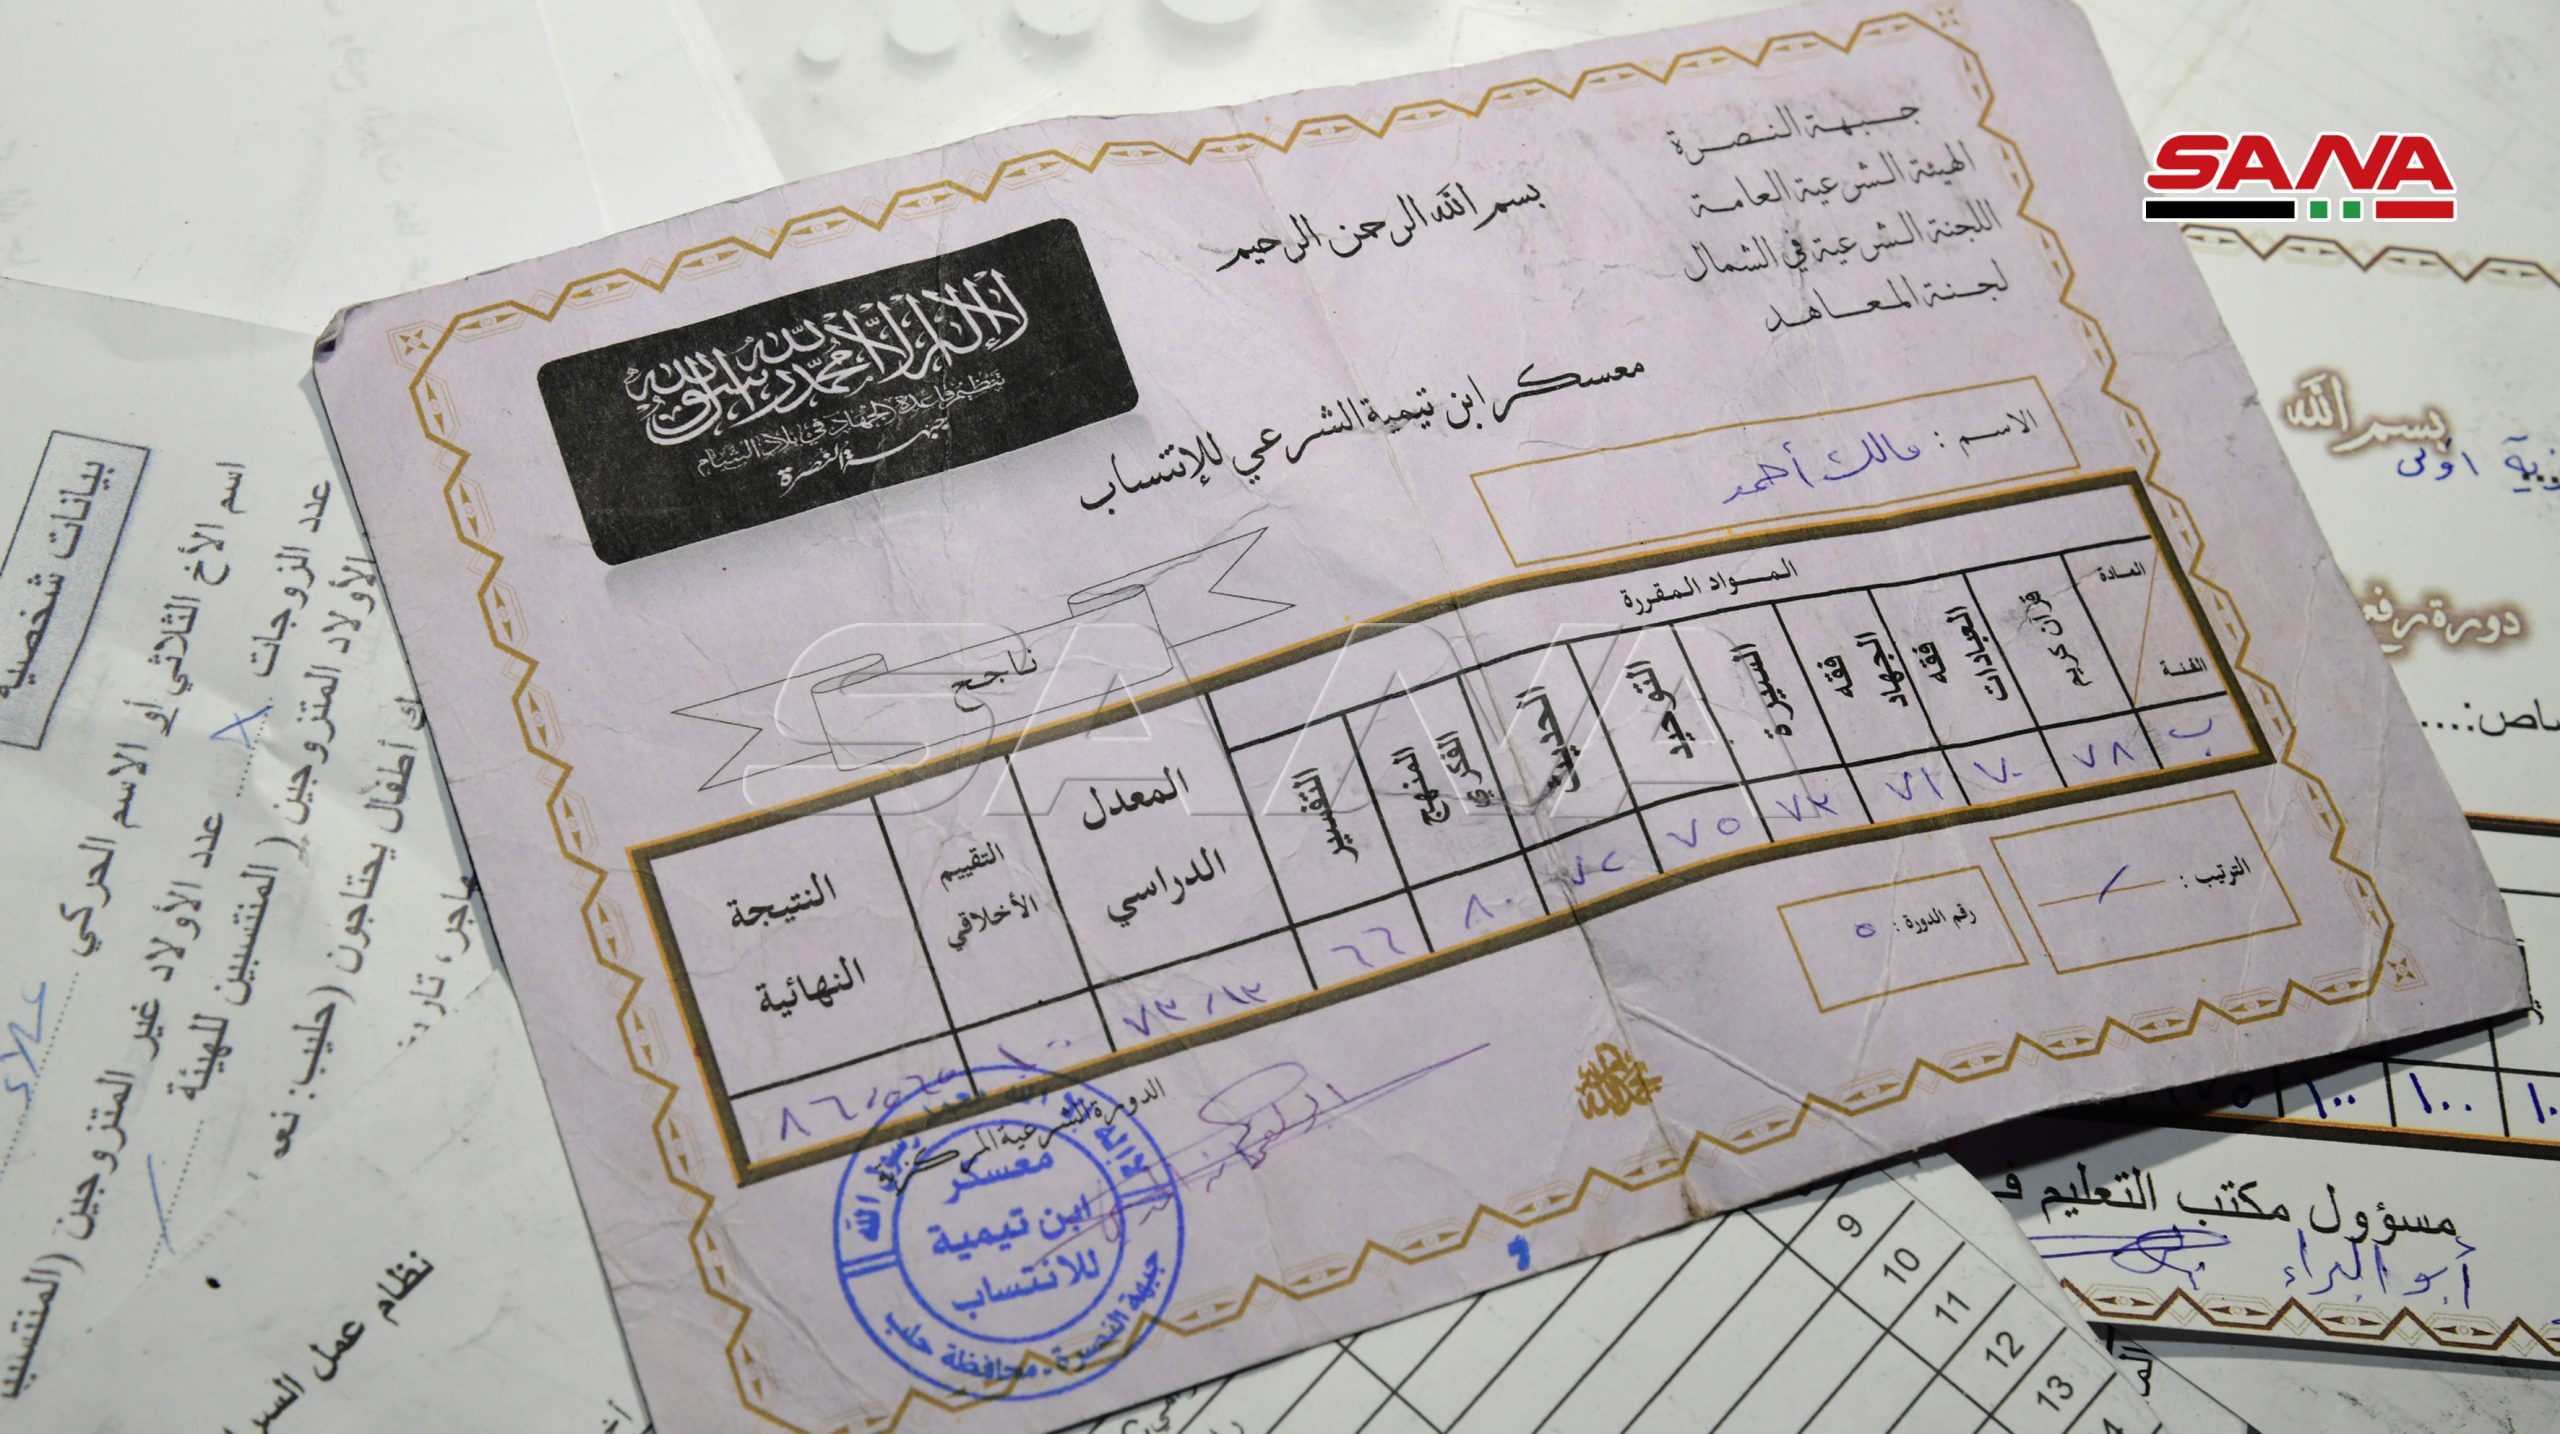 SANA
جبهة النصرة
الهيئة الشرعية العامة
اللجنة الشرعية في الشمال
لجنة المعاهد
بسم الله الرحمن الرحيم
لا إله إلا الله محمد رسول الله
تنظيم قاعدة الجهاد في بلاد الشام
جبهة النصرة
معسكر ابن تيمية الشرعي للإنتساب
الاسم : مالك أحمد
ناجح
المواد المقررة
المادة
الفئة
قرآن كريم
فقه العبادات
فقه الجهاد
السيرة
التوحيد
الحديث
المنهج الفكري
التفسير
المعدل الدراسي
التقييم الأخلاقي
النتيجة النهائية
ب ٧٨ ٧٠ ٧١ ٧٣ ٧٥ ٨٠ ٦٦ ٧٣/١٣
الترتيب :
رقم الدورة : ٥
الدورة الشرعية المركزية
لا إله إلا الله محمد رسول الله
معسكر
ابن تيمية
للانتساب
جبهة النصرة - محافظة حلب
SANA
بيانات شخصية
اسم الأخ الثلاثي أو الاسم الحركي
عدد الزوجات
عدد الأولاد غير المتزوجين (المنتسبين
الأولاد المتزوجين (المنتسبين للهيئة
ك أطفال يحتاجون (حليب: نعم
نظام عمل
بسم الله
اولى
دورة
١٠٠ ١٠٠
مسؤول مكتب التعليم
أبو البراء
9
10
11
12
13